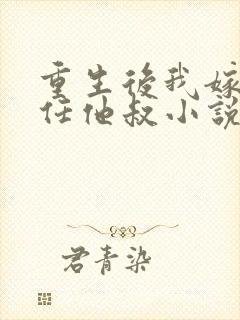 重生後我嫁
任他叔小說
君青染